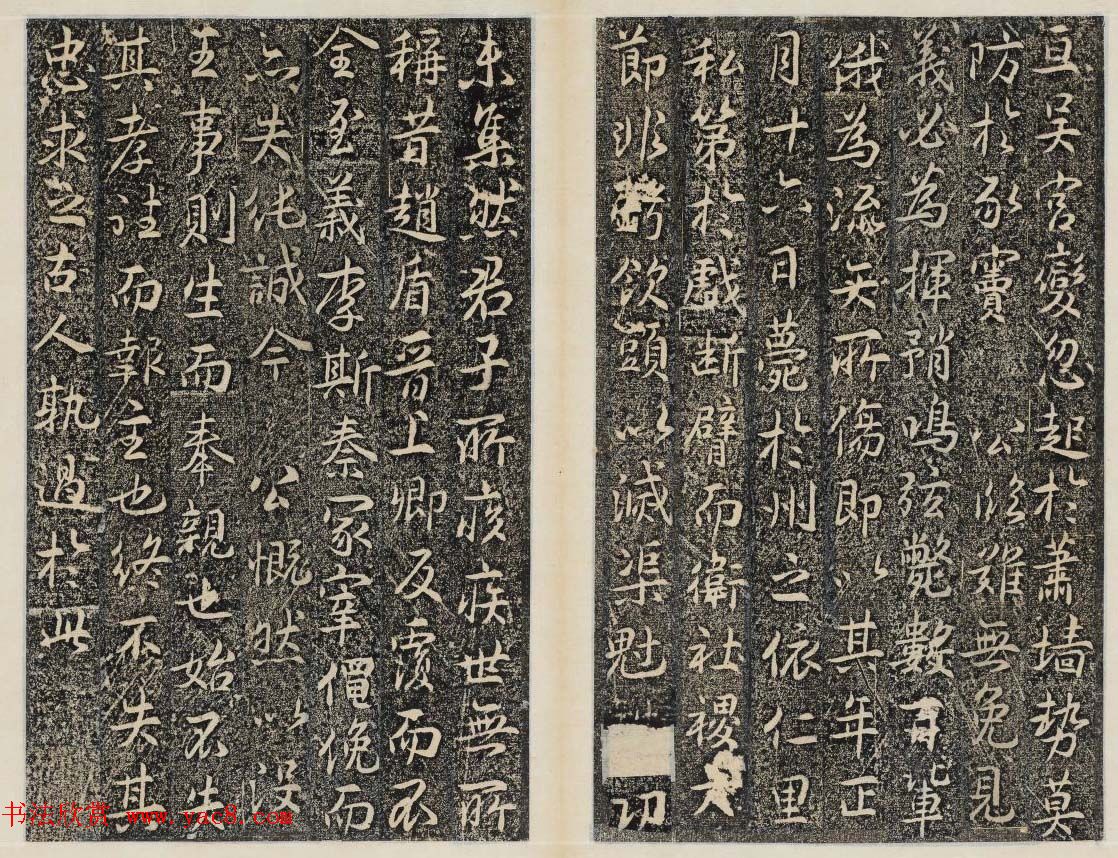 亘吴宫變忽起於蕭墙勢莫
防於豕竇 公臨難無免見
義必為揮矟鳴弦斃數百輩
俄為流矢所傷即以其年正
月十六日薨於州之依仁里
私第於戲断臂而衛社稷大
節非虧飲頭以滅渠魁 功
未集然君子所疾世無所
稱昔趙盾晉上卿反覆而不
全至義李斯秦冢宰僶俛而
亦失純誠今 公慨然以没
王事則生而奉親也始不失
其孝 而報主也終不失其
忠求之古人孰過於此
书法欣赏 www.yac8.com